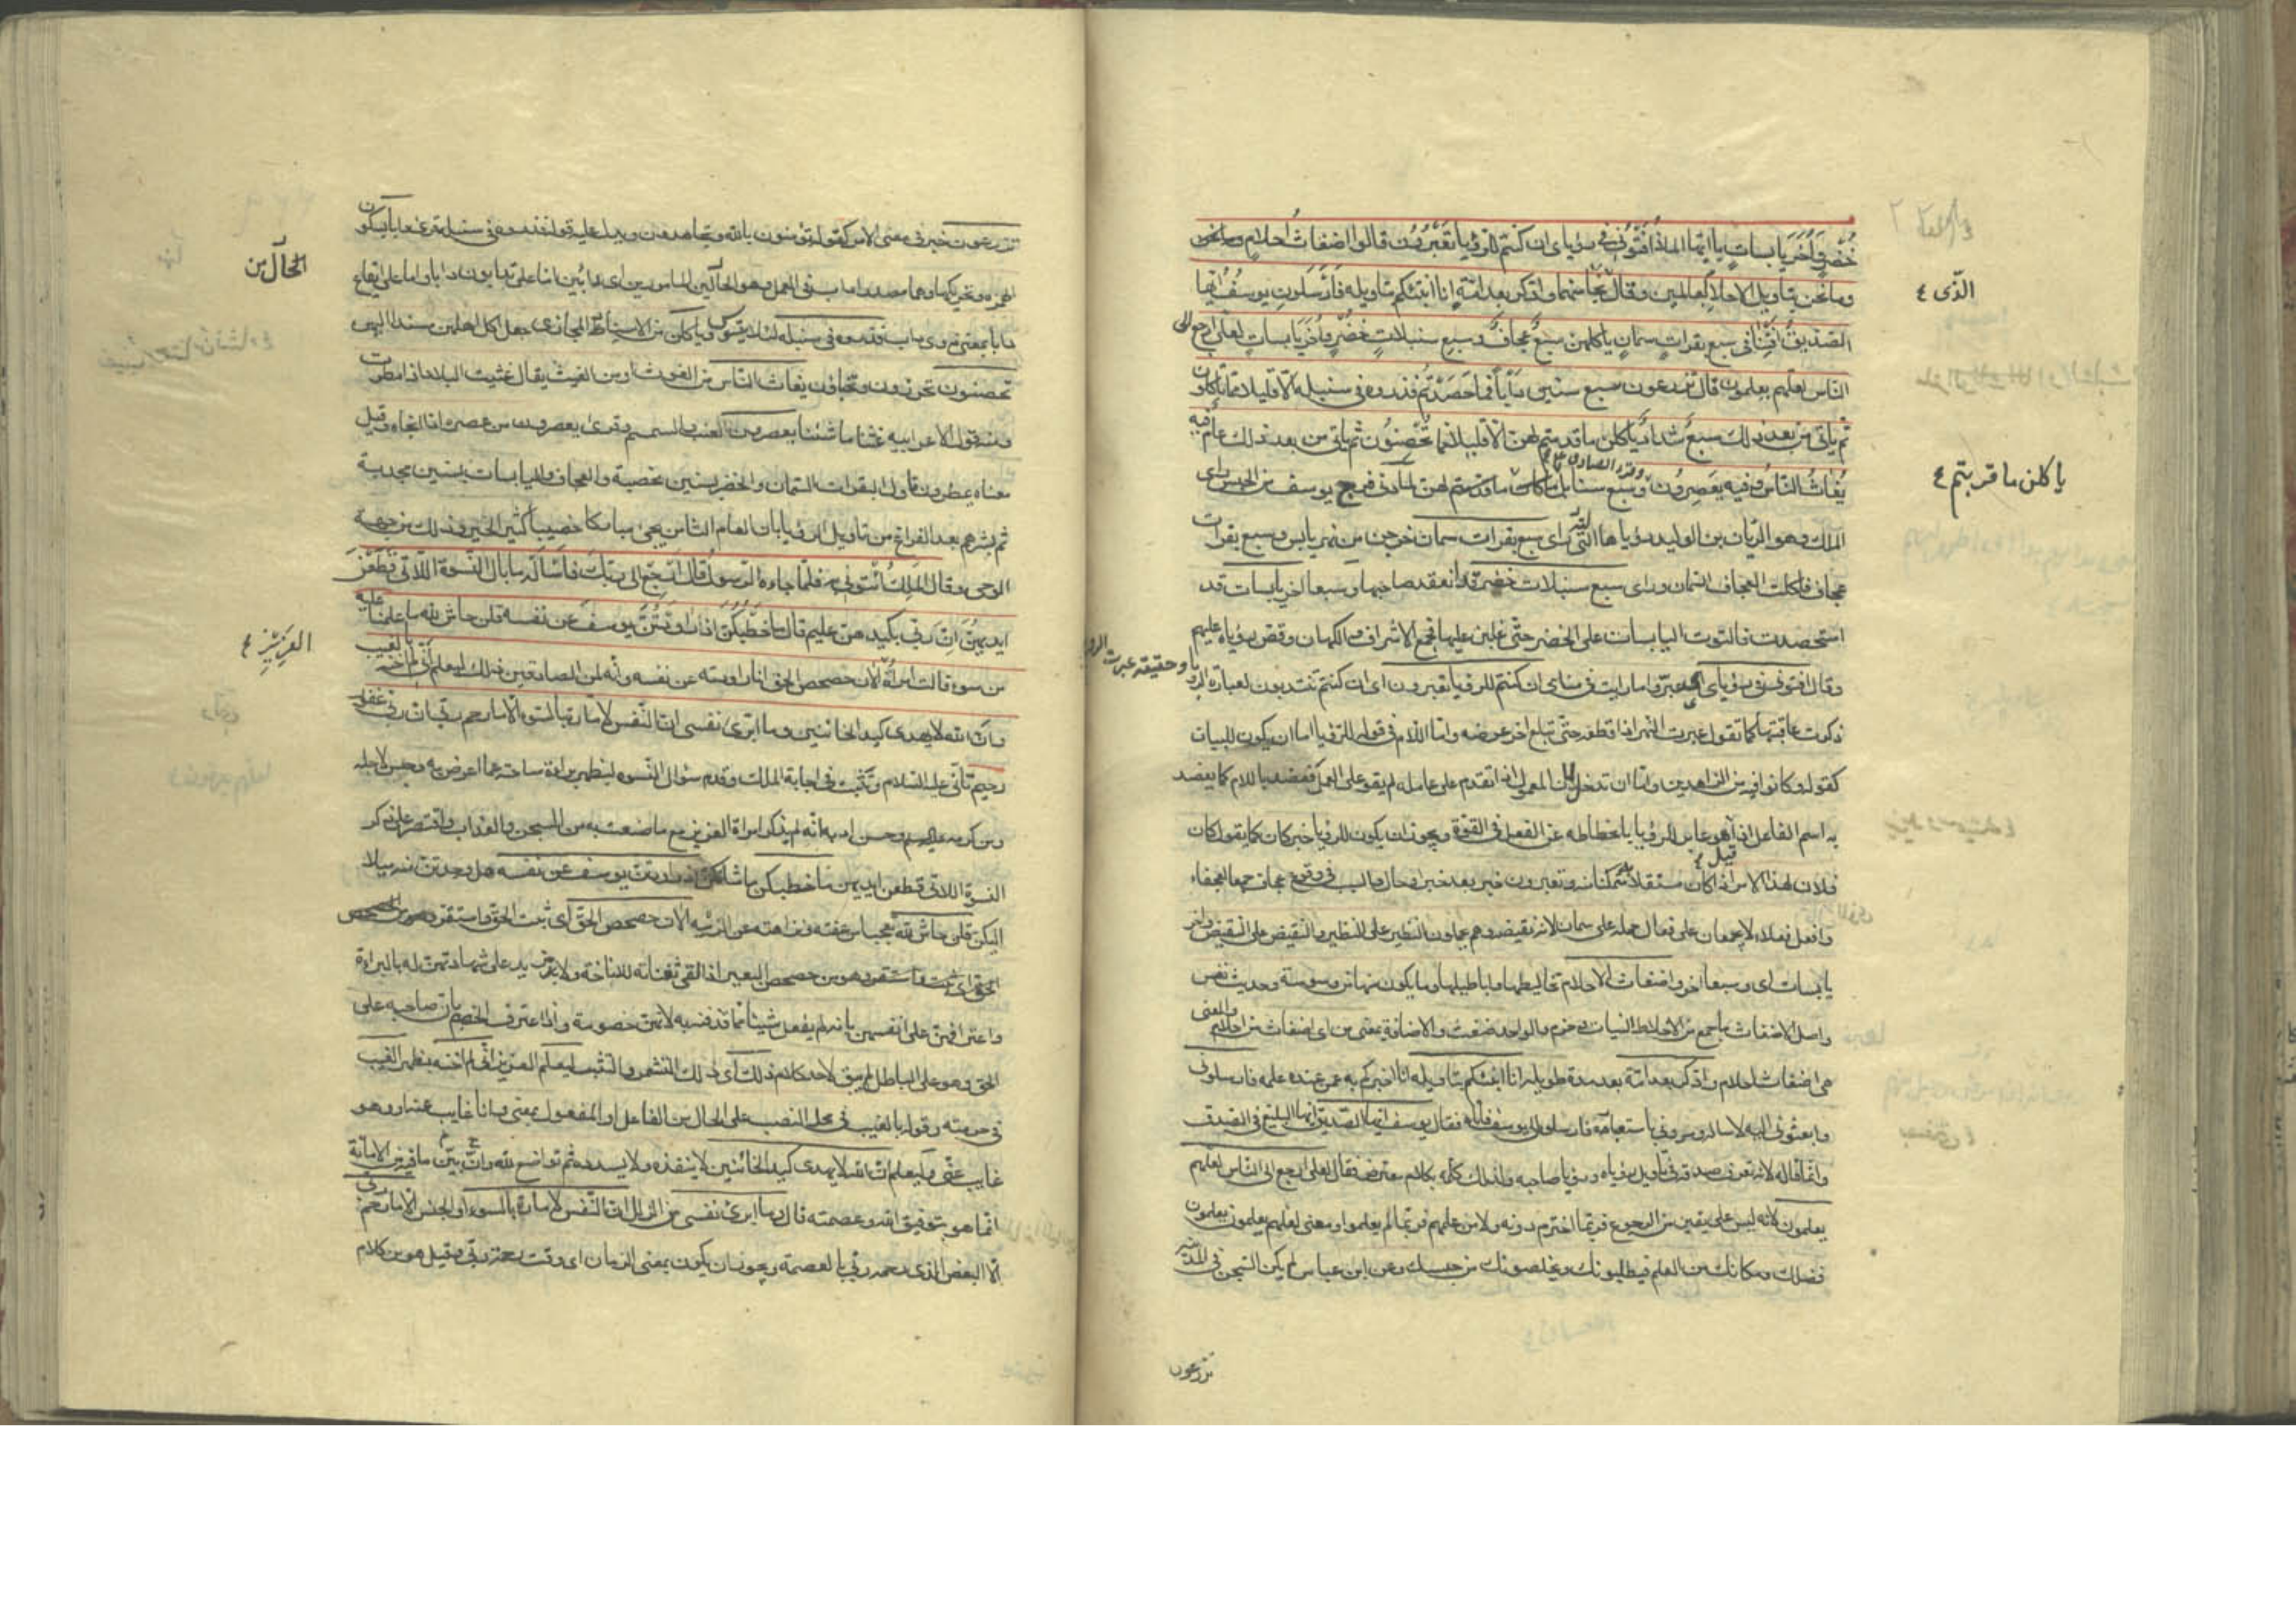 خُضْرٍ وَأُخَرَ يابساتٍ يا ايّها الملأ افتوني في رؤياى ان كنتم للرؤيا تعبرون قالوا اضغاث احلام وما نحن
وما نحن بتأويل الاحلام بعالمين وقال نجا منهما وادكر بعد امة انا انبئكم بتأويله فارسلون يوسف ايها
الذى ٤
الصديق افتنا في سبع بقرات سمان ياكلهن سبع عجاف وسبع سنبلات خضر واخر يابسات لعلى ارجع الى
الناس لعلهم يعلمون قال تزرعون سبع سنين دابا فما حصدتم فذروه في سنبله الا قليلا مما تاكلون
ثم ياتى من بعد ذلك سبع شداد ياكلن ما قدمتم لهن الا قليلا مما تحصنون ثم ياتى من بعد ذلك عام فيه
يغاث الناس وفيه يعصرون وقرء الصادق وسبع سنابل ما قدمتم لهن لما دنى فرج يوسف من الحبس راى
ياكلن ما قربتم ٤
الملك وهو الريان بن الوليد رؤيا هالته راى سبع بقرات سمان خرجن من نهر يابس وسبع بقرات
عجاف فاكلت العجاف السمان وراى سبع سنبلات خضر قد انعقد حبها وسبعا اخر يابسات قد
استحصدت فالتوت اليابسات على الخضر حتى غلبن عليها فجمع الاشراف والكهان وقص رؤياه عليهم
وقال افتونى في رؤياى اى عبروا ما رايت في منامى ان كنتم للرؤيا تعبرون اى ان كنتم تنتدبون لعبارة الرؤيا وحقيقة عبرت الرؤيا
ذكرت عاقبتها كما تقول عبرت النهر اذا قطعته حتى تبلغ اخر عرضه واما اللام في قوله للرؤيا اما ان يكون للبيان
كقوله وكانوا فيه من الزاهدين واما ان تدخل لان المعمول اذا تقدم على عامله لم يقو على العمل فعضد باللام كما يعضد
به اسم الفاعل اذا قيل هو عابر للرؤيا لانحطاطه عن الفعل في القوة ويجوز ان يكون للرؤيا خبر كان كما يقول كان
فلان لهذا الامر اذا كان مستقلا به متمكنا منه وتعبرون خبر بعد خبر او حال والسبب في وقوع عجاف جمعا لعجفاء
وافعل فعلاء لا يجمعان على فعال حمله على سمان لانه نقيضه وهم يحملون النظير على النظير والنقيض على النقيض واخر
يابسات اى وسبعا اخر واضغاث الاحلام تخاليطها واباطيلها وما يكون منها من وسوسة وحديث نفس
واصل الاضغاث ما جمع من الاخلاط النبات وحزم والواحد ضغث والاضافة بمعنى من اى اضغاث من احلام والمعنى
هى اضغاث احلام وادكر بعد امة بعد مدة طويلة انا انبئكم بتاويله انا اخبركم به عمن عنده علمه فارسلونى
وابعثونى اليه لاساله ومرونى باستعباره فارسلوه الى يوسف فاتاه فقال يوسف ايها الصديق ايها البليغ في الصدق
وانما قاله لانه تعرف صدقه في تاويل رؤياه ورؤيا صاحبه ولذلك كلمه بكلام محترز فقال لعلى ارجع الى الناس لعلهم
يعلمون لانه ليس على يقين من الرجوع فربما اخترم دونه ولا من علمهم فربما لم يعلموا ومعنى لعلهم يعلمون يعلمون
فضلك ومكانك من العلم فيطلبونك ويخلصونك من حبسك وعن ابن عباس لم يكن السجن في المدينة
تزرعون
تزرعون خبر في معنى الامر كقوله تؤمنون بالله وتجاهدون ويدل عليه قوله فذروه في سنبله وقرئ دأبا بسكون
الهمزة وتحريكها وهما مصدرا داب في العمل وهو حال من المامورين اى دائبين اما على تدابون دابا واما على ايقاع
الحال من
دابا بمعنى ذوى داب فذروه في سنبله لئلا يتسوس وياكلن من الاسناد المجازى جعل اكل اهلهن مسندا اليهن
تحصنون تحرزون وتخبأون يغاث الناس من الغوث او من الغيث يقال غيثت البلاد اذا مطرت
ومنه قول الاعرابيه غثنا ما شئنا يعصرون العنب والسمسم وقرئ يعصرون من عصره اذا انجاه وقيل
معناه يمطرون تاول البقرات السمان والخضر بسنين مخصبة والعجاف واليابسات بسنين مجدبة
ثم بشرهم بعد الفراغ من تاويل الرؤيا بان العام الثامن يجئ مباركا خصيبا كثير الخير وذلك من جهة
الوحى وقال الملك ائتونى به فلما جاءه الرسول قال ارجع الى ربك فاساله ما بال النسوة اللاتى قطعن
ايديهن ان ربى بكيدهن عليم قال ما خطبكن اذ راودتن يوسف عن نفسه قلن حاش لله ما علمنا عليه
من سوء قالت امرأة الان حصحص الحق انا راودته عن نفسه وانه لمن الصادقين ذلك ليعلم انى لم اخنه بالغيب
العزيز ٤
وان الله لا يهدى كيد الخائنين وما ابرئ نفسى ان النفس لامارة بالسوء الا ما رحم ربى ان ربى غفور
رحيم تأنى عليه السلام وتثبت في اجابة الملك وقدم سؤال النسوة ليظهر براءة ساحته عما اعرض به وحبس لاجله
ومن كرمه وحسن ادبه انه لم يذكر امراة العزيز مع ما صنعت به من السجن والعذاب واقتصر على ذكر
النسوة اللاتى قطعن ايديهن ما خطبكن ما شانكن اذ راودتن يوسف عن نفسه هل وجدتن منه ميلا
اليكن قلن حاش لله تعجبا من عفته ونزاهته عن الريبة الان حصحص الحق اى ثبت الحق واستقر
وهو من حصحص البعير اذا القى ثفناته للاناخة ولا مزيد على شهادتهن له بالبراءة
واعترافهن على انفسهن بانه لم يفعل شيئا مما قذفنه به لانهن خصومه واذا اعترف الخصم بان صاحبه على
الحق وهو على الباطل لم يبق لاحد كلام ذلك اى ذلك التشمر والتثبت ليعلم العزيز انى لم اخنه بظهر الغيب
في حرمته وقوله بالغيب في محل النصب على الحال من الفاعل او المفعول بمعنى وانا غايب عنه او وهو
غايب عنى وليعلم ان الله لا يهدى كيد الخائنين لا ينفذه ولا يسدده ثم تواضع لله وبين ان ما فيه من الامانة
انما هو بتوفيق الله وعصمته قال وما ابرئ نفسى من الزلل ان النفس لامارة بالسوء اراد الجنس الا ما رحم ربى
الا البعض الذى رحمه ربى بالعصمة ويجوز ان يكون بمعنى الزمان اى وقت رحمة ربى وقيل هو من كلام